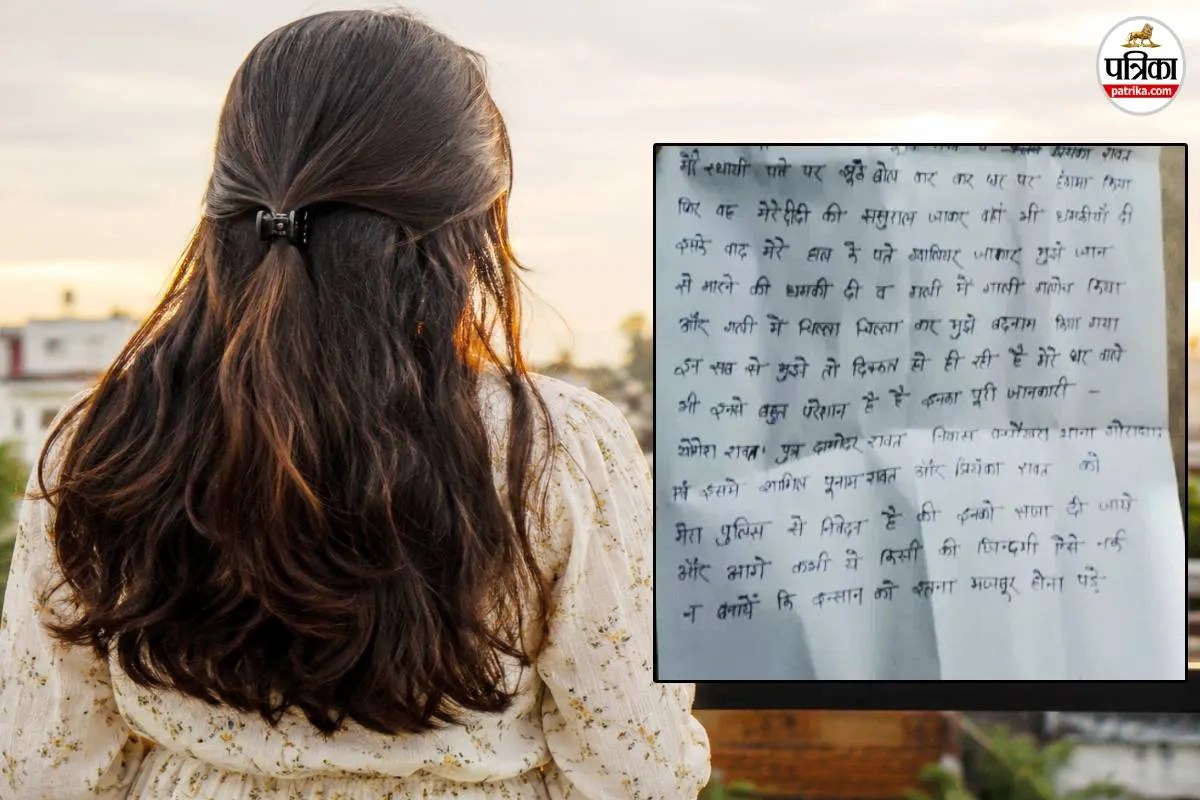 पत्रिका
patrika.com
प्रियंका रावत
मेरे स्थायी पते पर झूठ बोल कर कर घर पर हंगामा किया
फिर वह मेरे दीदी की ससुराल जाकर वहां भी धमकीयाँ दी
इसके बाद मेरे हाल के पते ग्वालियर जाकार मुझे जान
से मारने की धमकी दी व गली में गाली गलोच किया
और गली में चिल्ला चिल्ला कर मुझे बदनाम किया गया
इन सब से मुझे तो दिक्कत हो ही रही है मेरे घर वाले
भी इनसे बहुत परेशान है है इनका पूरी जानकारी -
योगेश रावत पुत्र दामोदर रावत निवास थाना
एवं इसमे शामिल पूनाम रावत और प्रियंका रावत को
मेरा पुलिस से निवेदन है की इनको सजा दी जाये
और आगे कभी ये किसी की जिन्दगी ऐसे नर्क
न बनायें कि इन्सान को इतना मजबूर होना पड़े